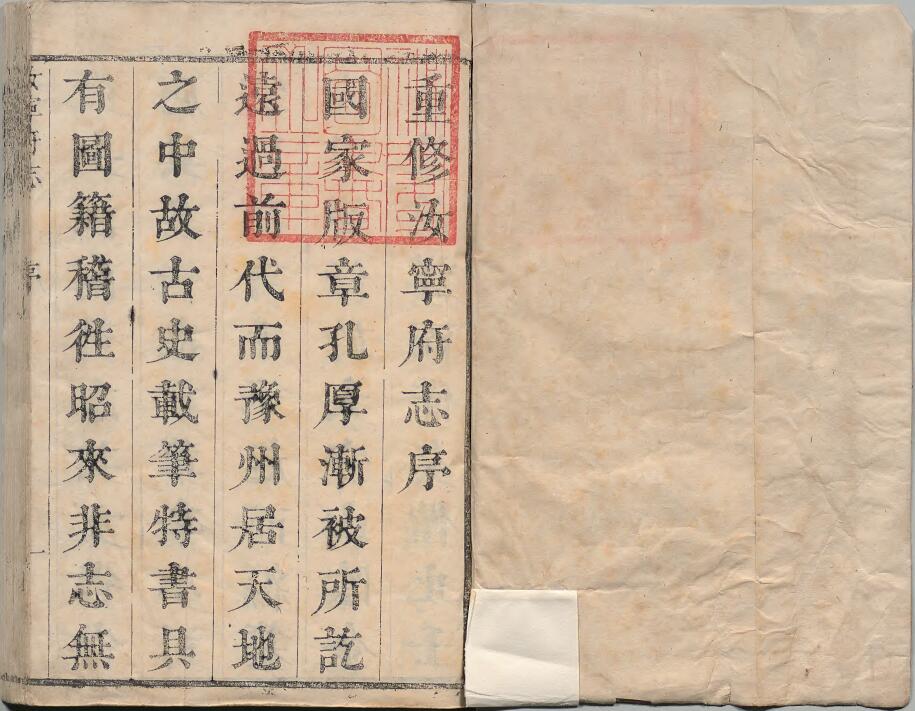 重修汝寧府志序
國家版章孔厚漸被所訖
遠過前代而豫州居天地
之中故古史載筆特書具
有圖籍稽徃昭來非志無